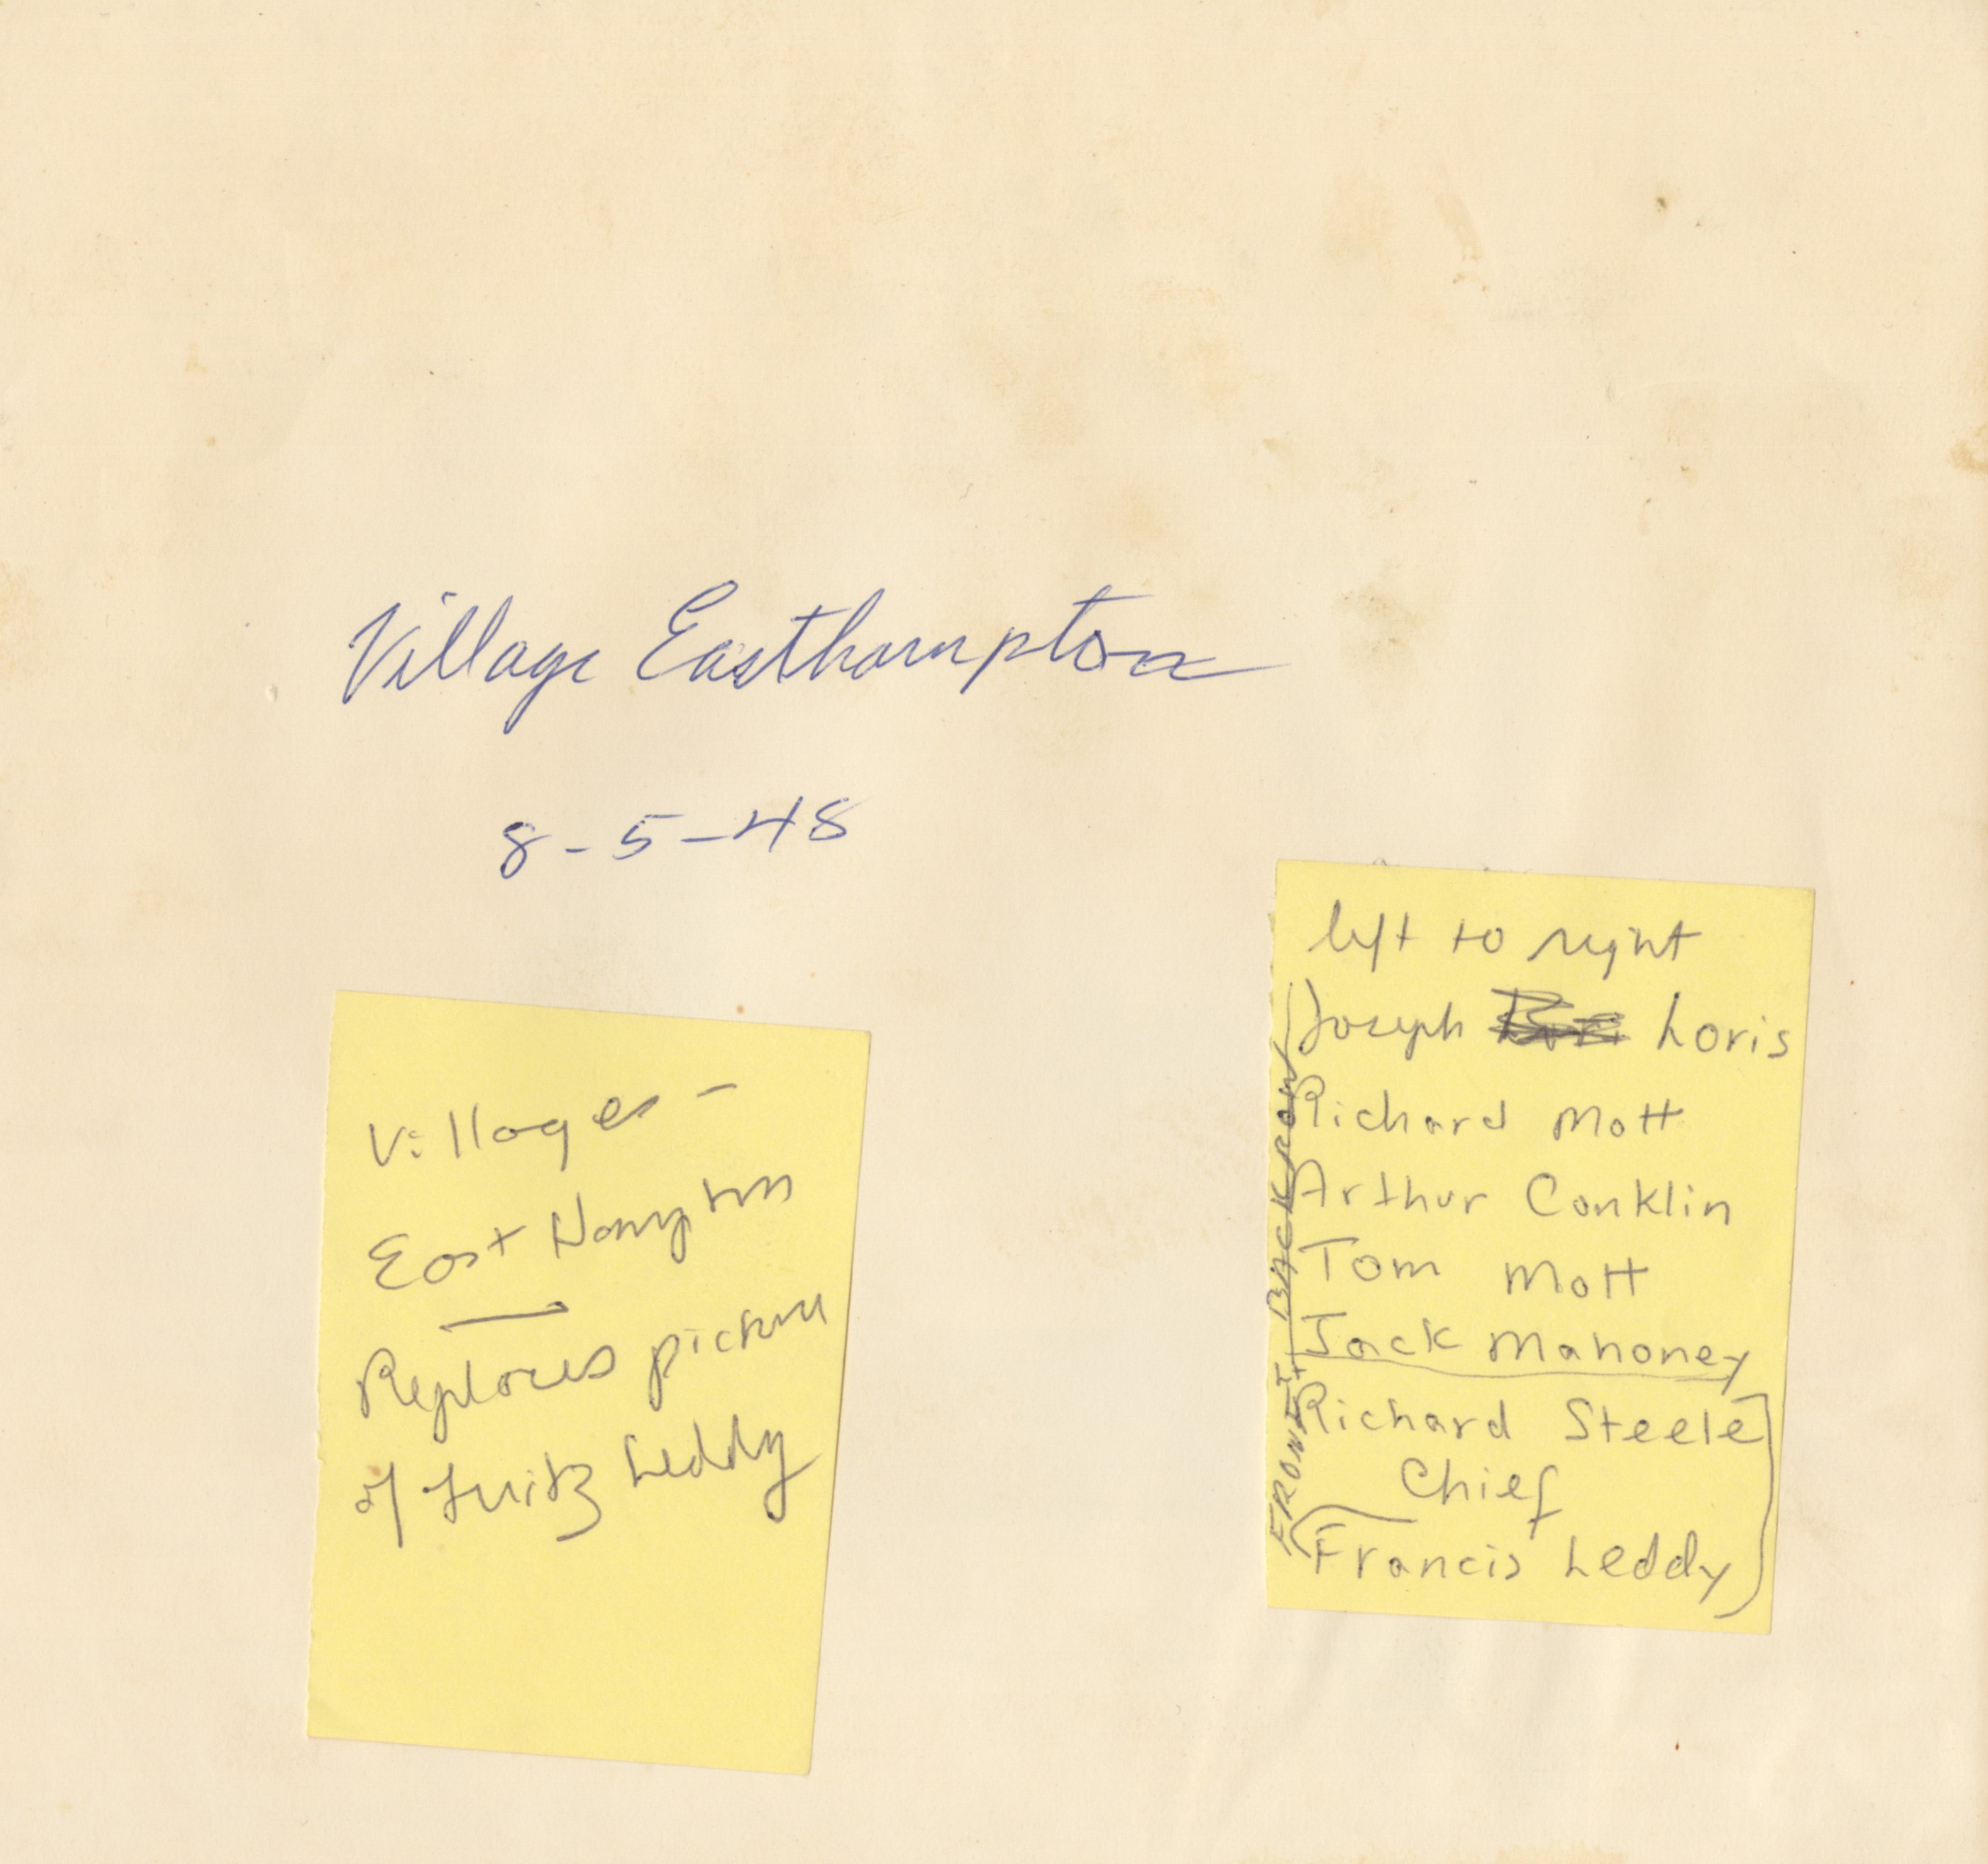 Village Easthampton
8-5-48
Villages -
East Hampton
Replaces picture
of Fritz Leddy
left to right
Joseph Loris
Richard Mott
Arthur Conklin
Tom Mott
Jack Mahoney
Richard Steele
Chief
Francis Leddy
BACK ROW
FRONT